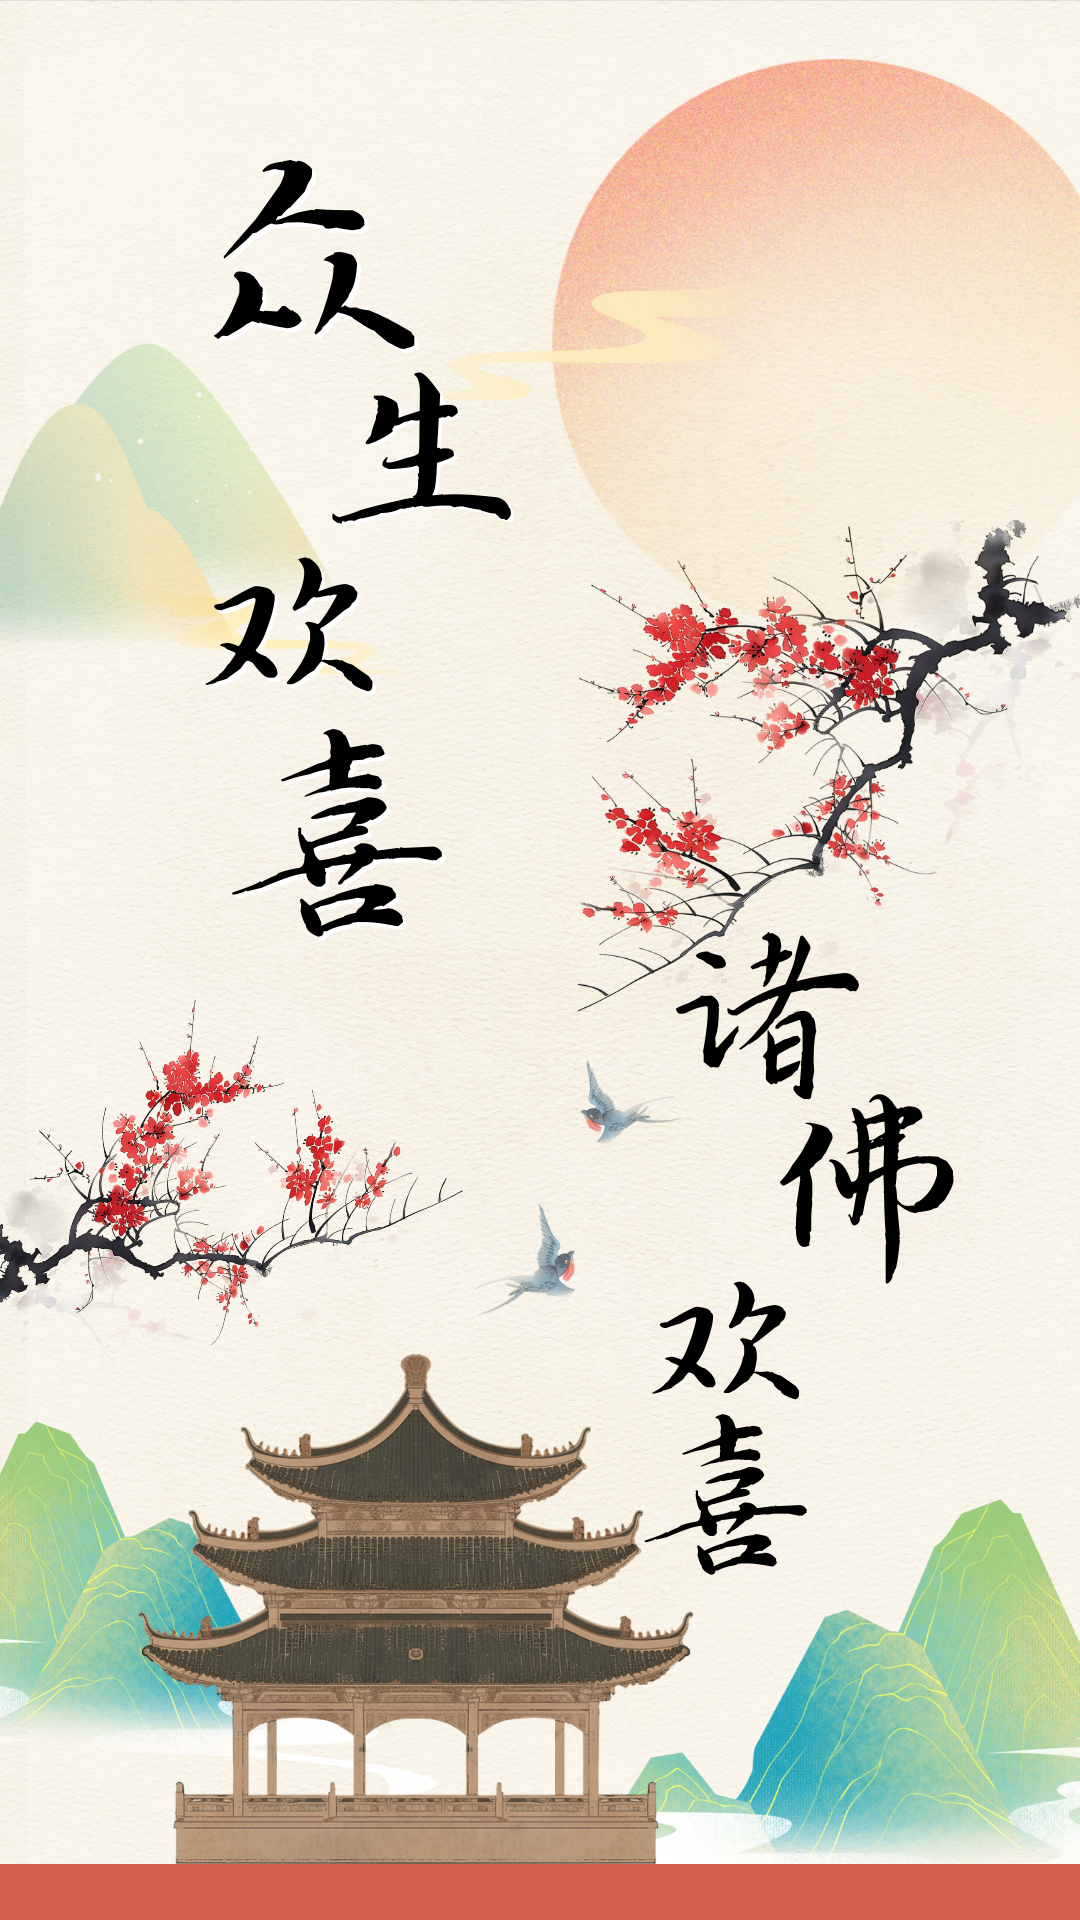 众生欢喜
诸佛欢喜